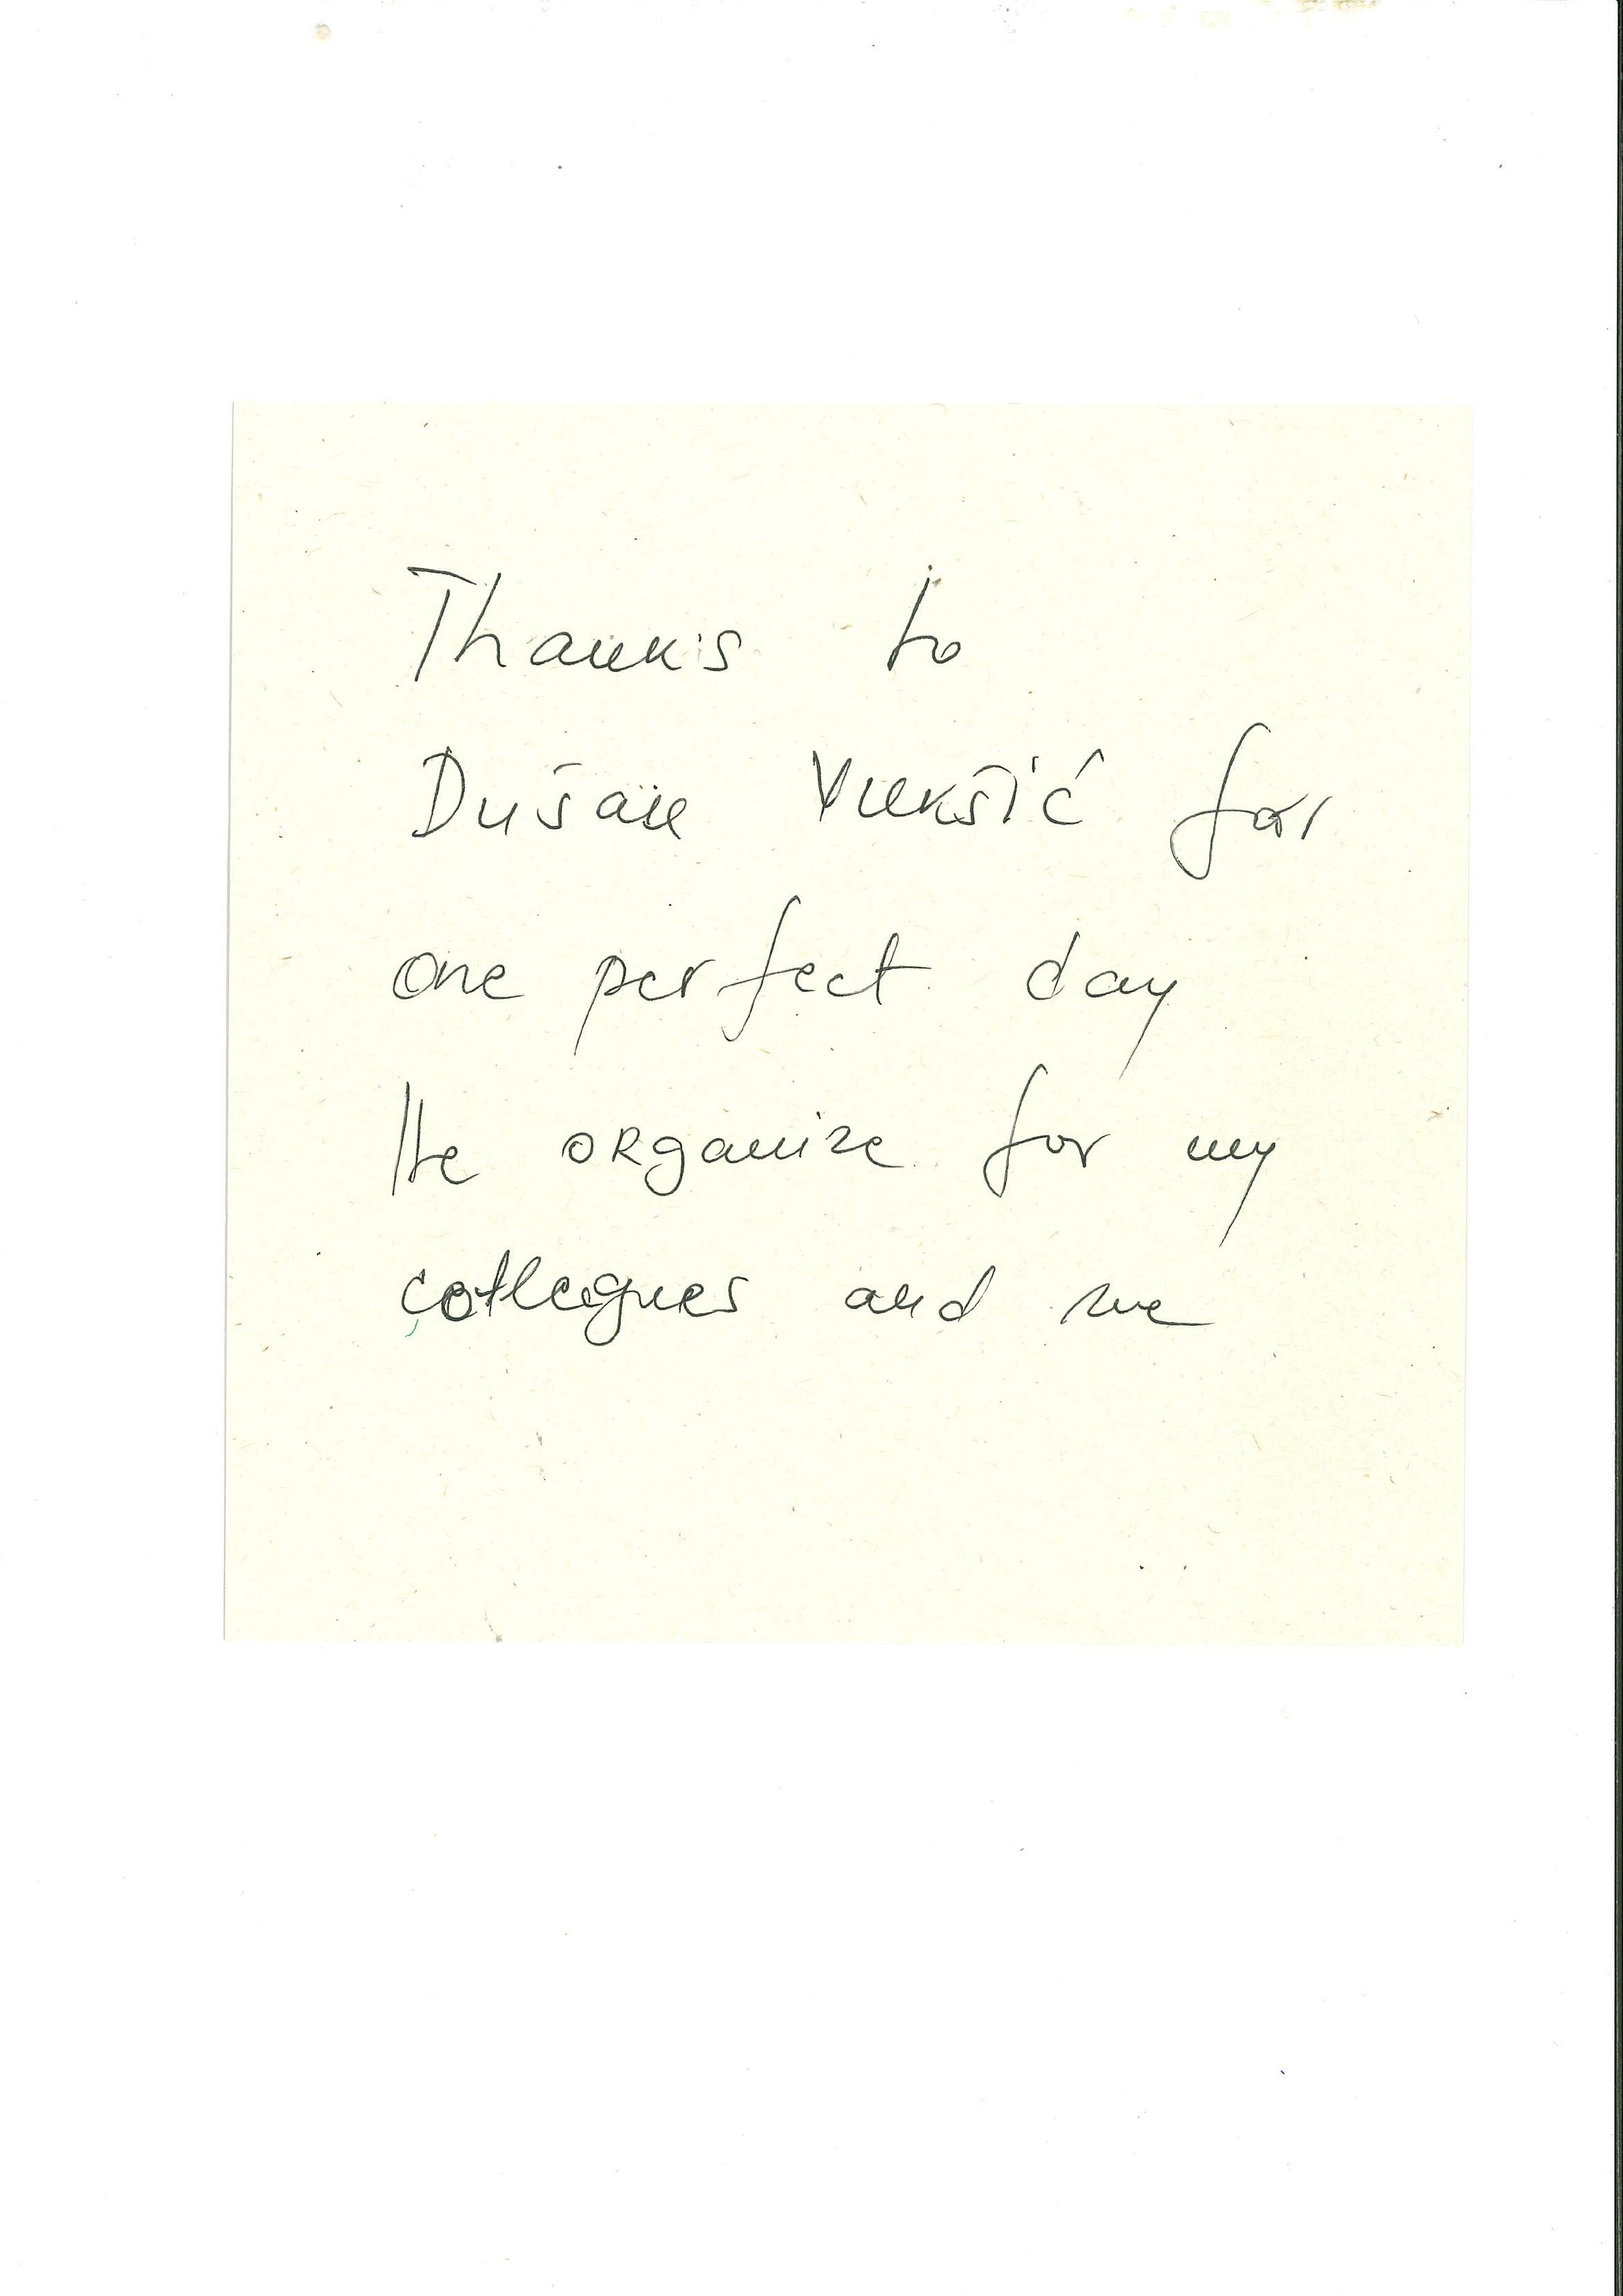 Thanks to
Dušan Vukšić for
one perfect day
He organize for my
collegues and me